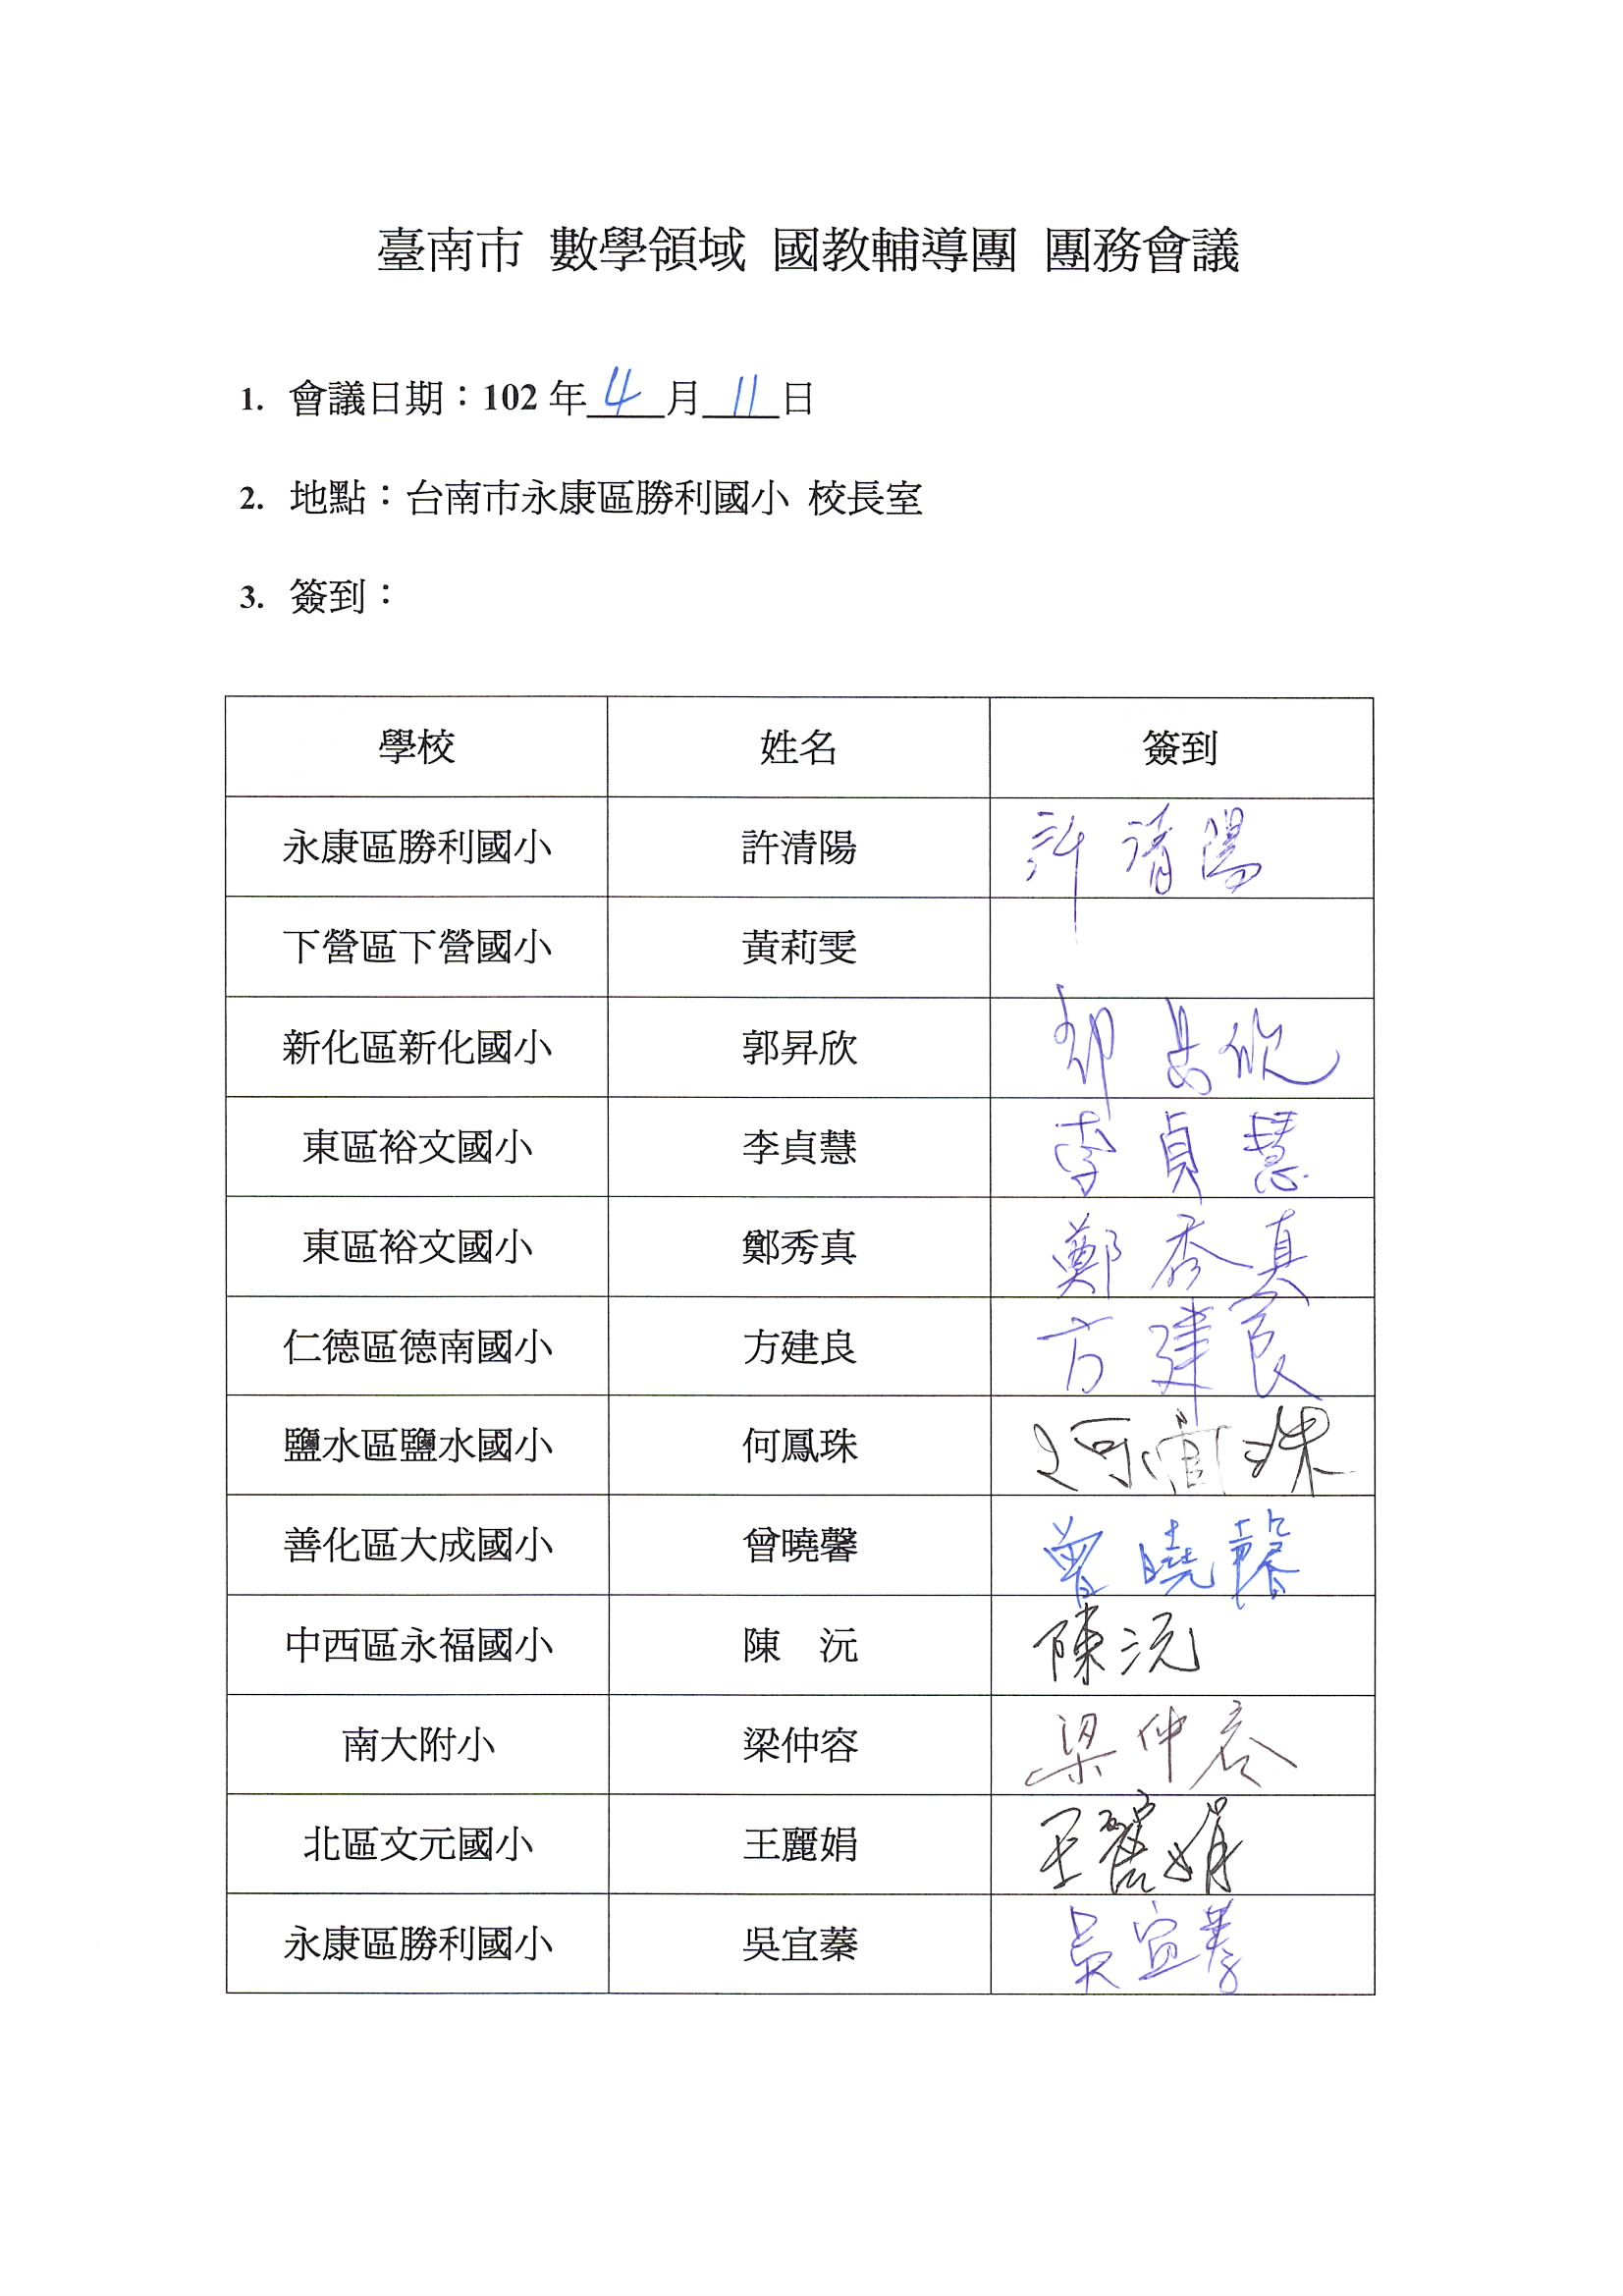 臺南市 數學領域 國教輔導團 團務會議
1. 會議日期：102 年 4 月 11 日
2. 地點：台南市永康區勝利國小 校長室
3. 簽到：
學校 姓名 簽到
永康區勝利國小 許清陽 許清陽
下營區下營國小 黃莉雯
新化區新化國小 郭昇欣 郭昇欣
東區裕文國小 李貞慧 李貞慧
東區裕文國小 鄭秀真 鄭秀真
仁德區德南國小 方建良 方建良
鹽水區鹽水國小 何鳳珠 何鳳珠
善化區大成國小 曾曉馨 曾曉馨
中西區永福國小 陳　沅 陳沅
南大附小 梁仲容 梁仲容
北區文元國小 王麗娟 王麗娟
永康區勝利國小 吳宜蓁 吳宜蓁